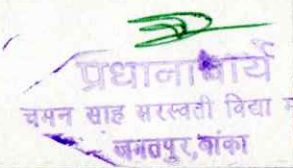 प्रधानाचार्य
चमन साह सरस्वती विद्या म
जगतपुर, बांका